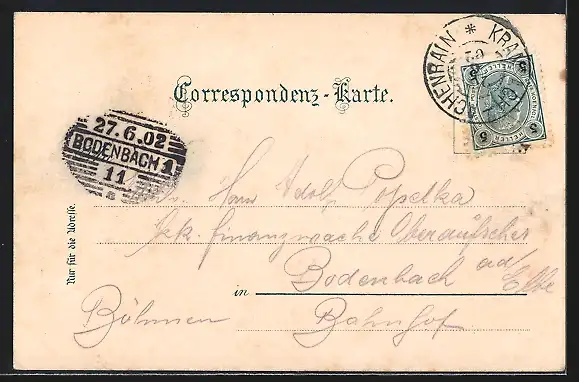 Correspondenz-Karte.
27.6.02
BODENBACH 1
11
5
5
HELLER
Nur für die Adresse.
Herrn Adolf Popelka
kk. Finanzwache Oberaufseher
in Bodenbach ad/Elbe
Böhmen Bahnhof